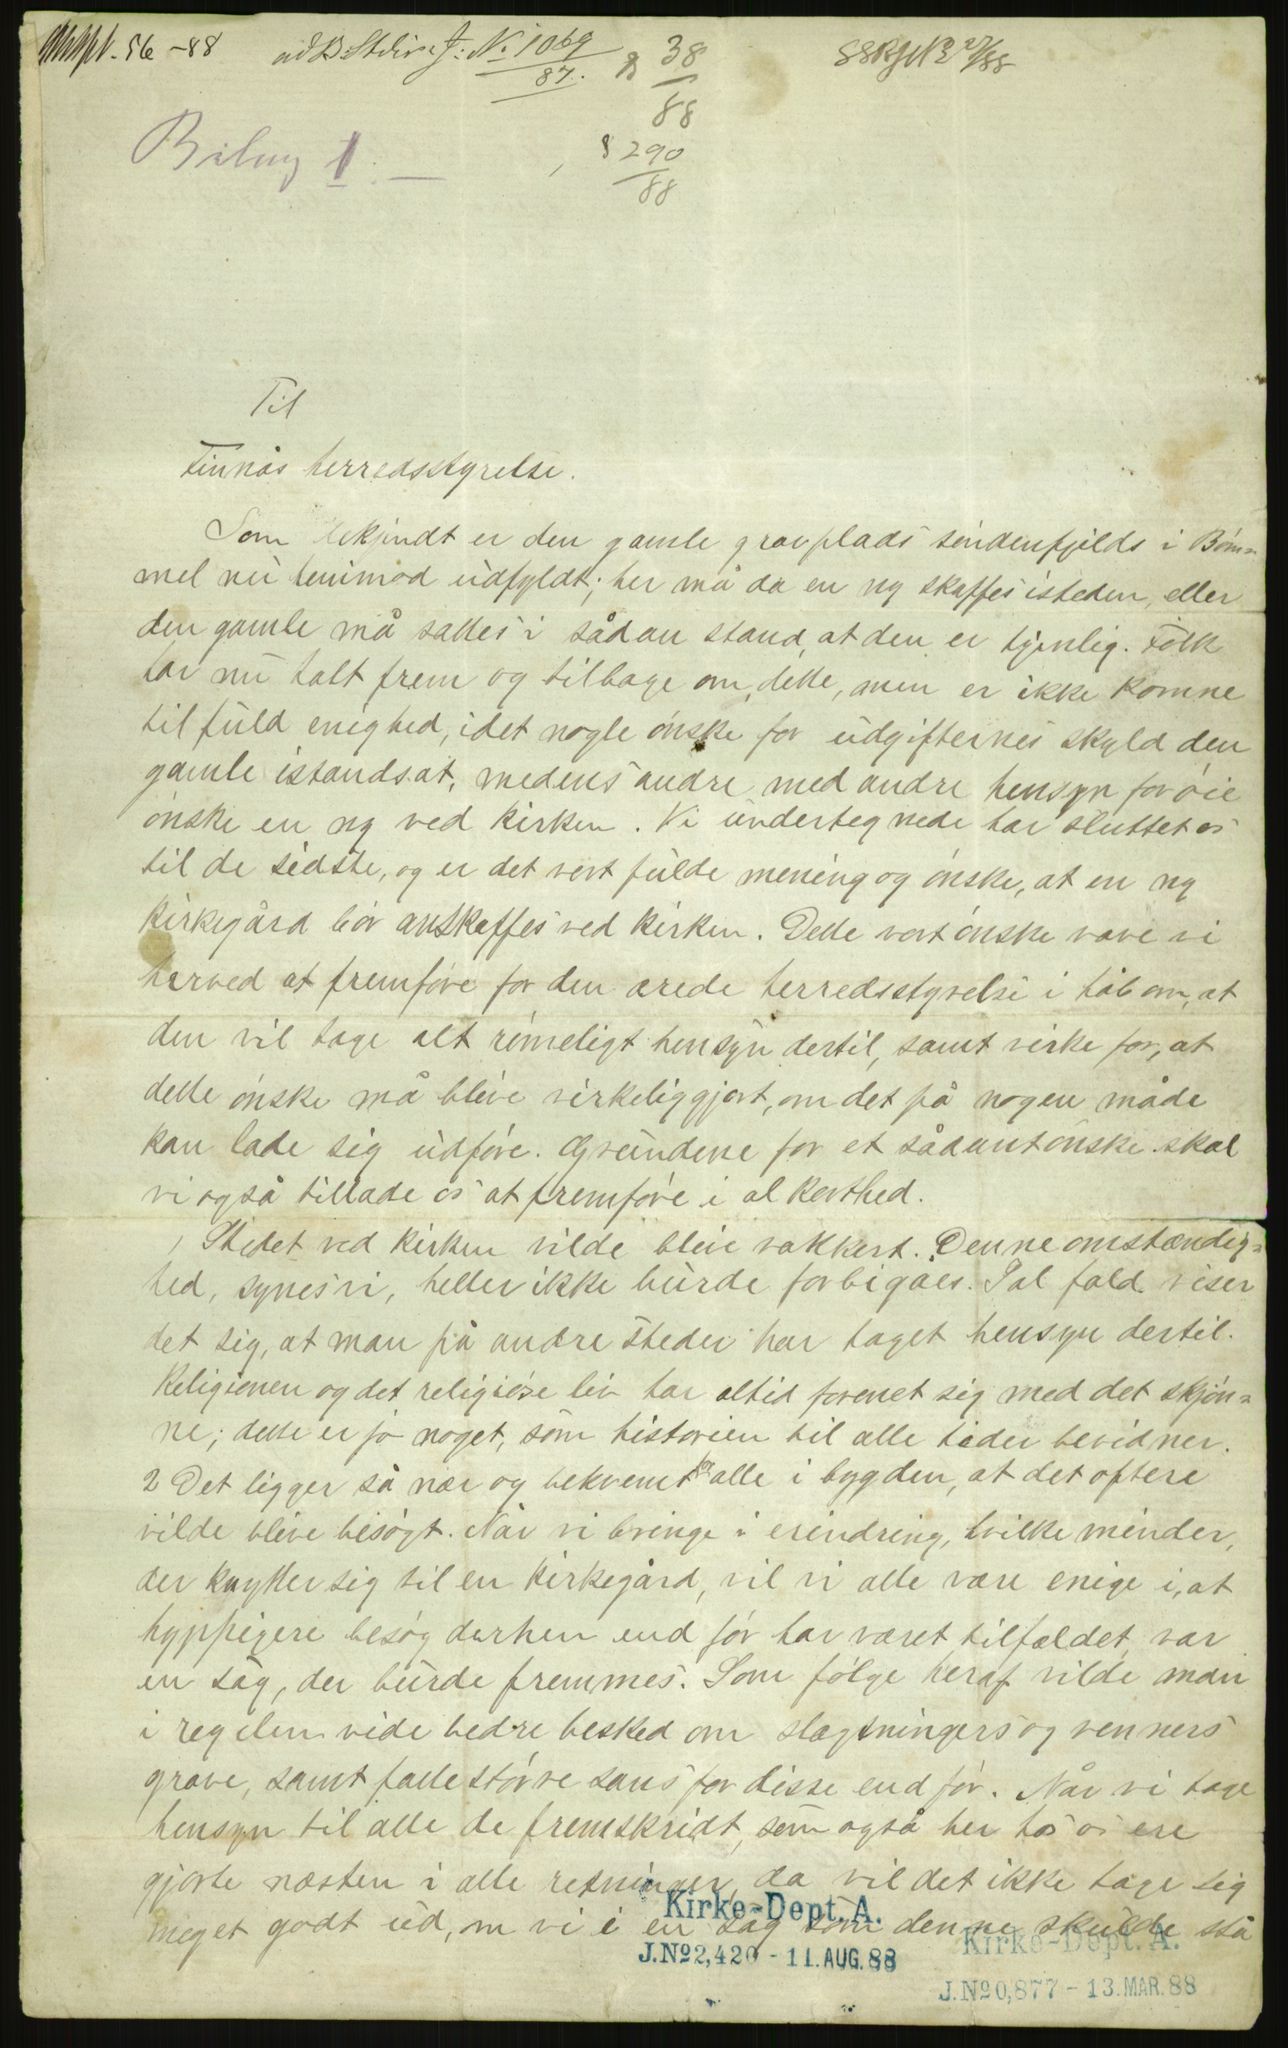 56 - 88
J: No 1069
87.
38
88
290
88
Bilag 1
Til
Finnås herredsstyrelse.
Som bekjendt er den gamle gravplads søndenfjelds i Bøm=
mel nu henimod udfyldt; her må da en ny skaffes isteden, eller
den gamle må sættes i sådan stand, at den er tjenlig. Folk
har nu talt frem og tilbage om dette, men er ikke komne
til fuld enighed, idet nogle ønske for udgifternes skyld den
gamle istandsat, medens andre med andre hensyn for øie
ønske en ny ved kirken. Vi undertegnede har sluttet os
til de sidste, og er det vort fulde mening og ønske, at en ny
kirkegård bør anskaffes ved kirken. Dette vort ønske vove vi
herved at fremføre for den ærede herredsstyrelse i håb om, at
den vil tage alt rimeligt hensyn dertil, samt virke for, at
dette ønske må blive virkeliggjort, om det på nogen måde
kan lade sig udføre. Grundene for et sådant ønske skal
vi også tillade os at fremføre i al korthed.
1 Stedet ved kirken vilde blive vakkert. Denne omstændig=
hed, synes vi, heller ikke burde forbigåes. I al fald viser
det sig, at man på andre steder har taget hensyn dertil.
Religionen og det religiøse liv har altid forenet sig med det skjøn=
ne; dette er jo noget, som historien til alle tider bevidner.
2 Det ligger så nær og bekvemt for alle i bygden, at det oftere
vilde blive besøgt. Når vi bringe i erindring, hvilke minder,
der knytter sig til en kirkegård, vil vi alle være enige i, at
hyppigere besøg derhen end før har været tilfældet, var
en sag, der burde fremmes. Som følge heraf vilde man
i regelen vide bedre besked om slægtningers og venners
grave, samt fatte større sans for disse end før. Når vi tage
hensyn til alle de fremskridt, som også her hos os ere
gjorte næsten i alle retninger, da vil det ikke tage sig
meget godt ud, om vi i en sag som denne skulde stå
Kirke-Dept. A.
J. No 2,420 - 11. AUG. 88
Kirke-Dept. A.
J. No 0,877 - 13. MAR. 88